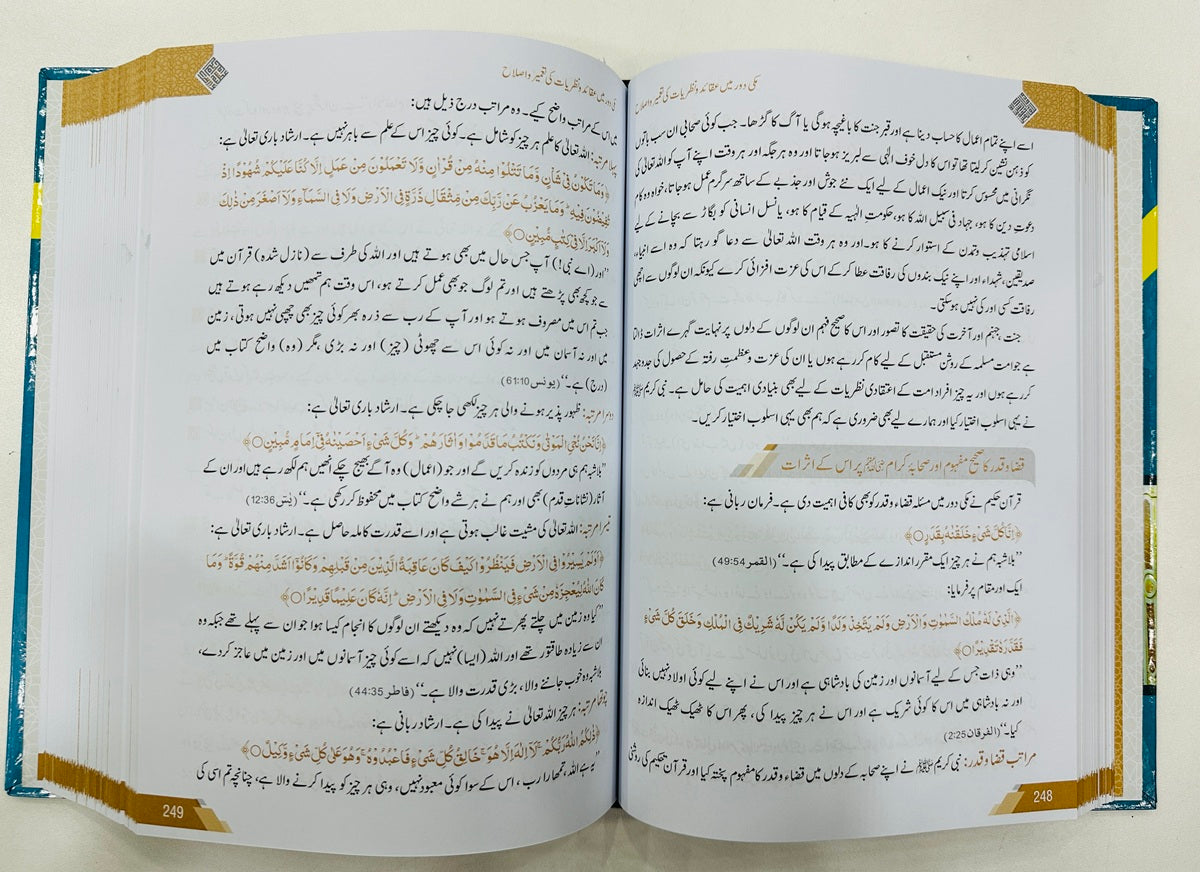 مکی دور میں عقائد و نظریات کی تعمیر و اصلاح
اسے اپنے تمام اعمال کا حساب دینا ہے اور قبر جنت کا باغیچہ ہوگی یا آگ کا گڑھا۔ جب کوئی صحابی ان سب باتوں
کو ذہن نشین کر لیتا تھا تو اس کا دل خوف الٰہی سے لبریز ہو جاتا اور وہ ہر جگہ اور ہر وقت اپنے آپ کو اللہ تعالیٰ کی
نگرانی میں محسوس کرتا اور نیک اعمال کے لیے ایک نئے جوش اور جذبے کے ساتھ سرگرم عمل ہو جاتا، خواہ وہ کام
دعوتِ دین کا ہو، جہاد فی سبیل اللہ کا ہو، حکومت الٰہیہ کے قیام کا ہو، یا نسل انسانی کو بگاڑ سے بچانے کے لیے
اسلامی تہذیب وتمدن کے استوار کرنے کا ہو۔ اور وہ ہر وقت اللہ تعالیٰ سے دعا گو رہتا کہ وہ اسے انبیاء،
صدیقین، شہداء اور اپنے نیک بندوں کی رفاقت عطا کر کے اس کی عزت افزائی کرے کیونکہ ان لوگوں سے اچھی
رفاقت کسی اور کی نہیں ہوسکتی۔
جنت، جہنم اور آخرت کی حقیقت کا تصور اور اس کا صحیح فہم ان لوگوں کے دلوں پر نہایت گہرے اثرات ڈالتا
ہے جو امت مسلمہ کے روشن مستقبل کے لیے کام کر رہے ہوں یا ان کی عزت و عظمتِ رفتہ کے حصول کی جدوجہد
کر رہے ہوں اور یہ چیز افراد امت کے اعتقادی نظریات کے لیے بھی بنیادی اہمیت کی حامل ہے۔ نبی کریم ﷺ
نے یہی اسلوب اختیار کیا اور ہمارے لیے بھی ضروری ہے کہ ہم بھی یہی اسلوب اختیار کریں۔
قضاء وقدر کا صحیح مفہوم اور صحابۂ کرام رضی اللہ عنہم پر اس کے اثرات
قرآن حکیم نے مکی دور میں مسئلہ قضاء و قدر کو بھی کافی اہمیت دی ہے۔ فرمان ربانی ہے:
﴿اِنَّا كُلَّ شَیْءٍ خَلَقْنٰهُ بِقَدَرٍ○﴾
’’بلاشبہ ہم نے ہر چیز ایک مقرر اندازے کے مطابق پیدا کی ہے۔‘‘ (القمر 49:54)
ایک اور مقام پر فرمایا:
﴿الَّذِیْ لَهٗ مُلْكُ السَّمٰوٰتِ وَالْاَرْضِ وَلَمْ یَتَّخِذْ وَلَدًا وَّلَمْ یَكُنْ لَّهٗ شَرِیْكٌ فِی الْمُلْكِ وَخَلَقَ كُلَّ شَیْءٍ
فَقَدَّرَهٗ تَقْدِیْرًا○﴾
’’وہی ذات جس کے لیے آسمانوں اور زمین کی بادشاہی ہے اور اس نے اپنے لیے کوئی اولاد نہیں بنائی
اور نہ بادشاہی میں اس کا کوئی شریک ہے اور اس نے ہر چیز پیدا کی، پھر اس کا ٹھیک ٹھیک اندازہ
کیا۔‘‘ (الفرقان 2:25)
مراتبِ قضاء و قدر: نبی کریم ﷺ نے اپنے صحابہ کے دلوں میں قضاء و قدر کا مفہوم پختہ کیا اور قرآن حکیم کی روشنی
248
دور میں عقائد و نظریات کی تعمیر و اصلاح
میں اس کے مراتب واضح کیے۔ وہ مراتب درج ذیل ہیں:
پہلا مرتبہ: اللہ تعالیٰ کا علم ہر چیز کو شامل ہے۔ کوئی چیز اس کے علم سے باہر نہیں ہے۔ ارشاد باری تعالیٰ ہے:
﴿وَمَا تَكُوْنُ فِیْ شَاْنٍ وَّمَا تَتْلُوْا مِنْهُ مِنْ قُرْاٰنٍ وَّلَا تَعْمَلُوْنَ مِنْ عَمَلٍ اِلَّا كُنَّا عَلَیْكُمْ شُهُوْدًا اِذْ
تُفِیْضُوْنَ فِیْهِ ؕ وَمَا یَعْزُبُ عَنْ رَّبِّكَ مِنْ مِّثْقَالِ ذَرَّةٍ فِی الْاَرْضِ وَلَا فِی السَّمَآءِ وَلَآ اَصْغَرَ مِنْ ذٰلِكَ
وَلَآ اَكْبَرَ اِلَّا فِیْ كِتٰبٍ مُّبِیْنٍ○﴾
’’اور (اے نبی!) آپ جس حال میں بھی ہوتے ہیں اور اللہ کی طرف سے (نازل شدہ) قرآن میں
سے جو کچھ بھی پڑھتے ہیں اور تم لوگ جو بھی عمل کرتے ہو، اس وقت ہم تمھیں دیکھ رہے ہوتے ہیں
جب تم اس میں مصروف ہوتے ہو اور آپ کے رب سے ذرہ بھر کوئی چیز بھی چھپی نہیں ہوتی، زمین
میں اور نہ آسمان میں اور نہ کوئی اس سے چھوٹی (چیز) اور نہ بڑی مگر (وہ) واضح کتاب میں
(درج) ہے۔‘‘ (یونس 61:10)
دوسرا مرتبہ: ظہور پذیر ہونے والی ہر چیز لکھی جا چکی ہے۔ ارشاد باری تعالیٰ ہے:
﴿اِنَّا نَحْنُ نُحْیِ الْمَوْتٰی وَنَكْتُبُ مَا قَدَّمُوْا وَاٰثَارَهُمْ ؕ وَكُلَّ شَیْءٍ اَحْصَیْنٰهُ فِیْٓ اِمَامٍ مُّبِیْنٍ○﴾
’’بلاشبہ ہم ہی مردوں کو زندہ کریں گے اور جو (اعمال) وہ آگے بھیج چکے انھیں ہم لکھ رہے ہیں اور ان کے
آثار (نشاناتِ قدم) بھی اور ہم نے ہر شے واضح کتاب میں محفوظ کر رکھی ہے۔‘‘ (یٰسٓ 12:36)
تیسرا مرتبہ: اللہ تعالیٰ کی مشیت غالب ہوتی ہے اور اسے قدرت کاملہ حاصل ہے۔ ارشاد باری تعالیٰ ہے:
﴿اَوَلَمْ یَسِیْرُوْا فِی الْاَرْضِ فَیَنْظُرُوْا كَیْفَ كَانَ عَاقِبَةُ الَّذِیْنَ مِنْ قَبْلِهِمْ وَكَانُوْٓا اَشَدَّ مِنْهُمْ قُوَّةً ؕ وَمَا
كَانَ اللّٰهُ لِیُعْجِزَهٗ مِنْ شَیْءٍ فِی السَّمٰوٰتِ وَلَا فِی الْاَرْضِ ؕ اِنَّهٗ كَانَ عَلِیْمًا قَدِیْرًا○﴾
’’کیا وہ زمین میں چلتے پھرتے نہیں کہ وہ دیکھتے ان لوگوں کا انجام کیسا ہوا جو ان سے پہلے تھے جبکہ وہ
ان سے زیادہ طاقتور تھے اور اللہ (ایسا) نہیں کہ اسے کوئی چیز آسمانوں میں اور زمین میں عاجز کر دے،
بلاشبہ وہ خوب جاننے والا، بڑی قدرت والا ہے۔‘‘ (فاطر 44:35)
چوتھا مرتبہ: ہر چیز اللہ تعالیٰ نے پیدا کی ہے۔ ارشاد ربانی ہے:
﴿ذٰلِكُمُ اللّٰهُ رَبُّكُمْ ۚ لَآ اِلٰهَ اِلَّا هُوَ ۚ خَالِقُ كُلِّ شَیْءٍ فَاعْبُدُوْهُ ۚ وَهُوَ عَلٰی كُلِّ شَیْءٍ وَّكِیْلٌ○﴾
’’یہ ہے اللہ، تمھارا رب، اس کے سوا کوئی معبود نہیں، وہی ہر چیز کو پیدا کرنے والا ہے، چنانچہ تم اسی کی
249